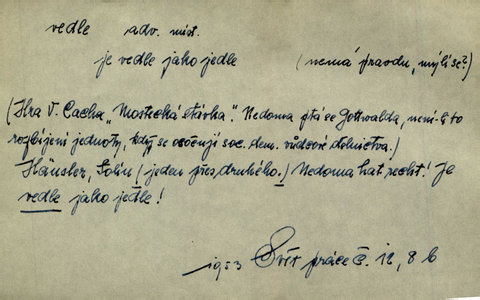 vedle adv. míst.
je vedle jako jedle (nemá pravdu, mýlí se?)
(Hra V. Cacha „Mostecká stávka“. Nedoma ptá se Gottwalda, není-li to
rozbíjení jednoty, když se osočují soc. dem. vůdcové dělnictva.)
Häusler, Solin (jeden přes druhého.) Nedoma hat recht! Je
vedle jako jedle!
1953 Svět práce č. 12, 8 b